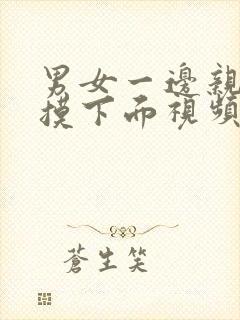 男女一邊親
摸下而視頻
蒼生笑